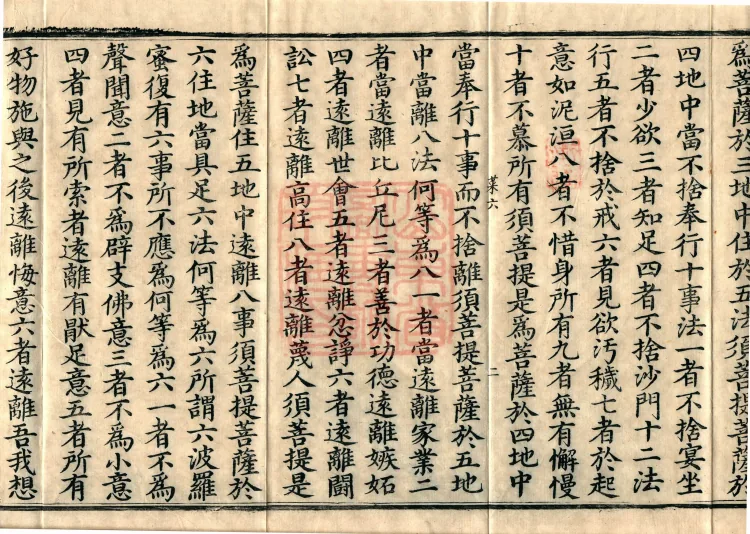 為菩薩於三地中住於五法須菩提菩薩於
四地中當不捨奉行十事法一者不捨宴坐
二者少欲三者知足四者不捨沙門十二法
行五者不捨於戒六者見欲汚穢七者於起
意如泥洹八者不惜身所有九者無有懈慢
十者不慕所有須菩提是為菩薩於四地中
菜六
二
當奉行十事而不捨離須菩提菩薩於五地
中當離八法何等為八一者當遠離家業二
者當遠離比丘尼三者善於功德遠離嫉妬
四者遠離世會五者遠離忿諍六者遠離鬪
訟七者遠離高住八者遠離蔑人須菩提是
為菩薩住五地中遠離八事須菩提菩薩於
六住地當具足六法何等為六所謂六波羅
蜜復有六事所不應為何等為六一者不為
聲聞意二者不為辟支佛意三者不為小意
四者見有所索者遠離有猒足意五者所有
好物施與之後遠離悔意六者遠離吾我想